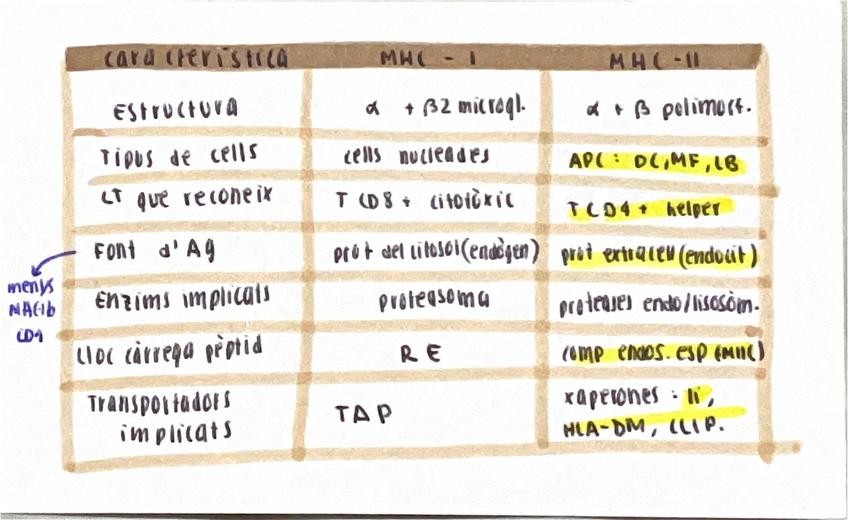 característica MHC - I MHC - II
Estructura α + β2 microgl. α + β polimorf.
Tipus de cells cells nucleades APC : DC, MF, LB
LT que reconeix T CD8 + citotòxic T CD4 + helper
Font d'Ag prot del citosol (endògen) prot extracel (endocit)
menys
CD1
Enzims implicats proteasoma proteases endo/lisosòm.
Lloc càrrega pèptid RE comp endos. esp (MIIC)
Transportadors
implicats
TAP
xaperones : Ii,
HLA-DM, CLIP.